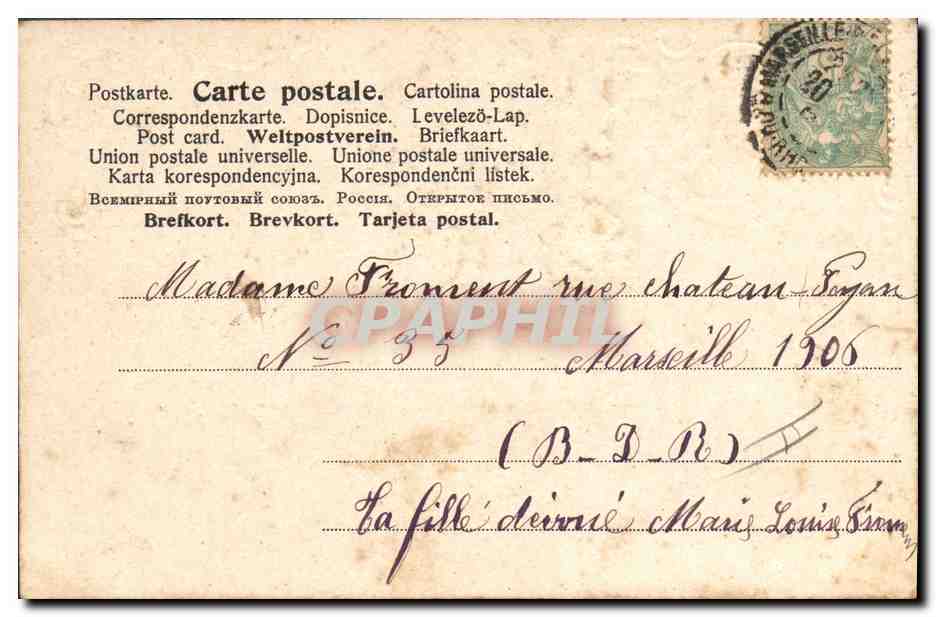 Postkarte. Carte postale. Cartolina postale.
Correspondenzkarte. Dopisnice. Levelezö-Lap.
Post card. Weltpostverein. Briefkaart.
Union postale universelle. Unione postale universale.
Karta korespondencyjna. Korespondenčni listek.
Всемірный поутовый союзъ. Россія. Открытое письмо.
Brefkort. Brevkort. Tarjeta postal.
MARSEILLE
20
Madame Froment rue chateau-Payan
CPAPHIL
No 35 Marseille 1906
(B-D-R)
Ta fille dévoué Marie Louise Froment